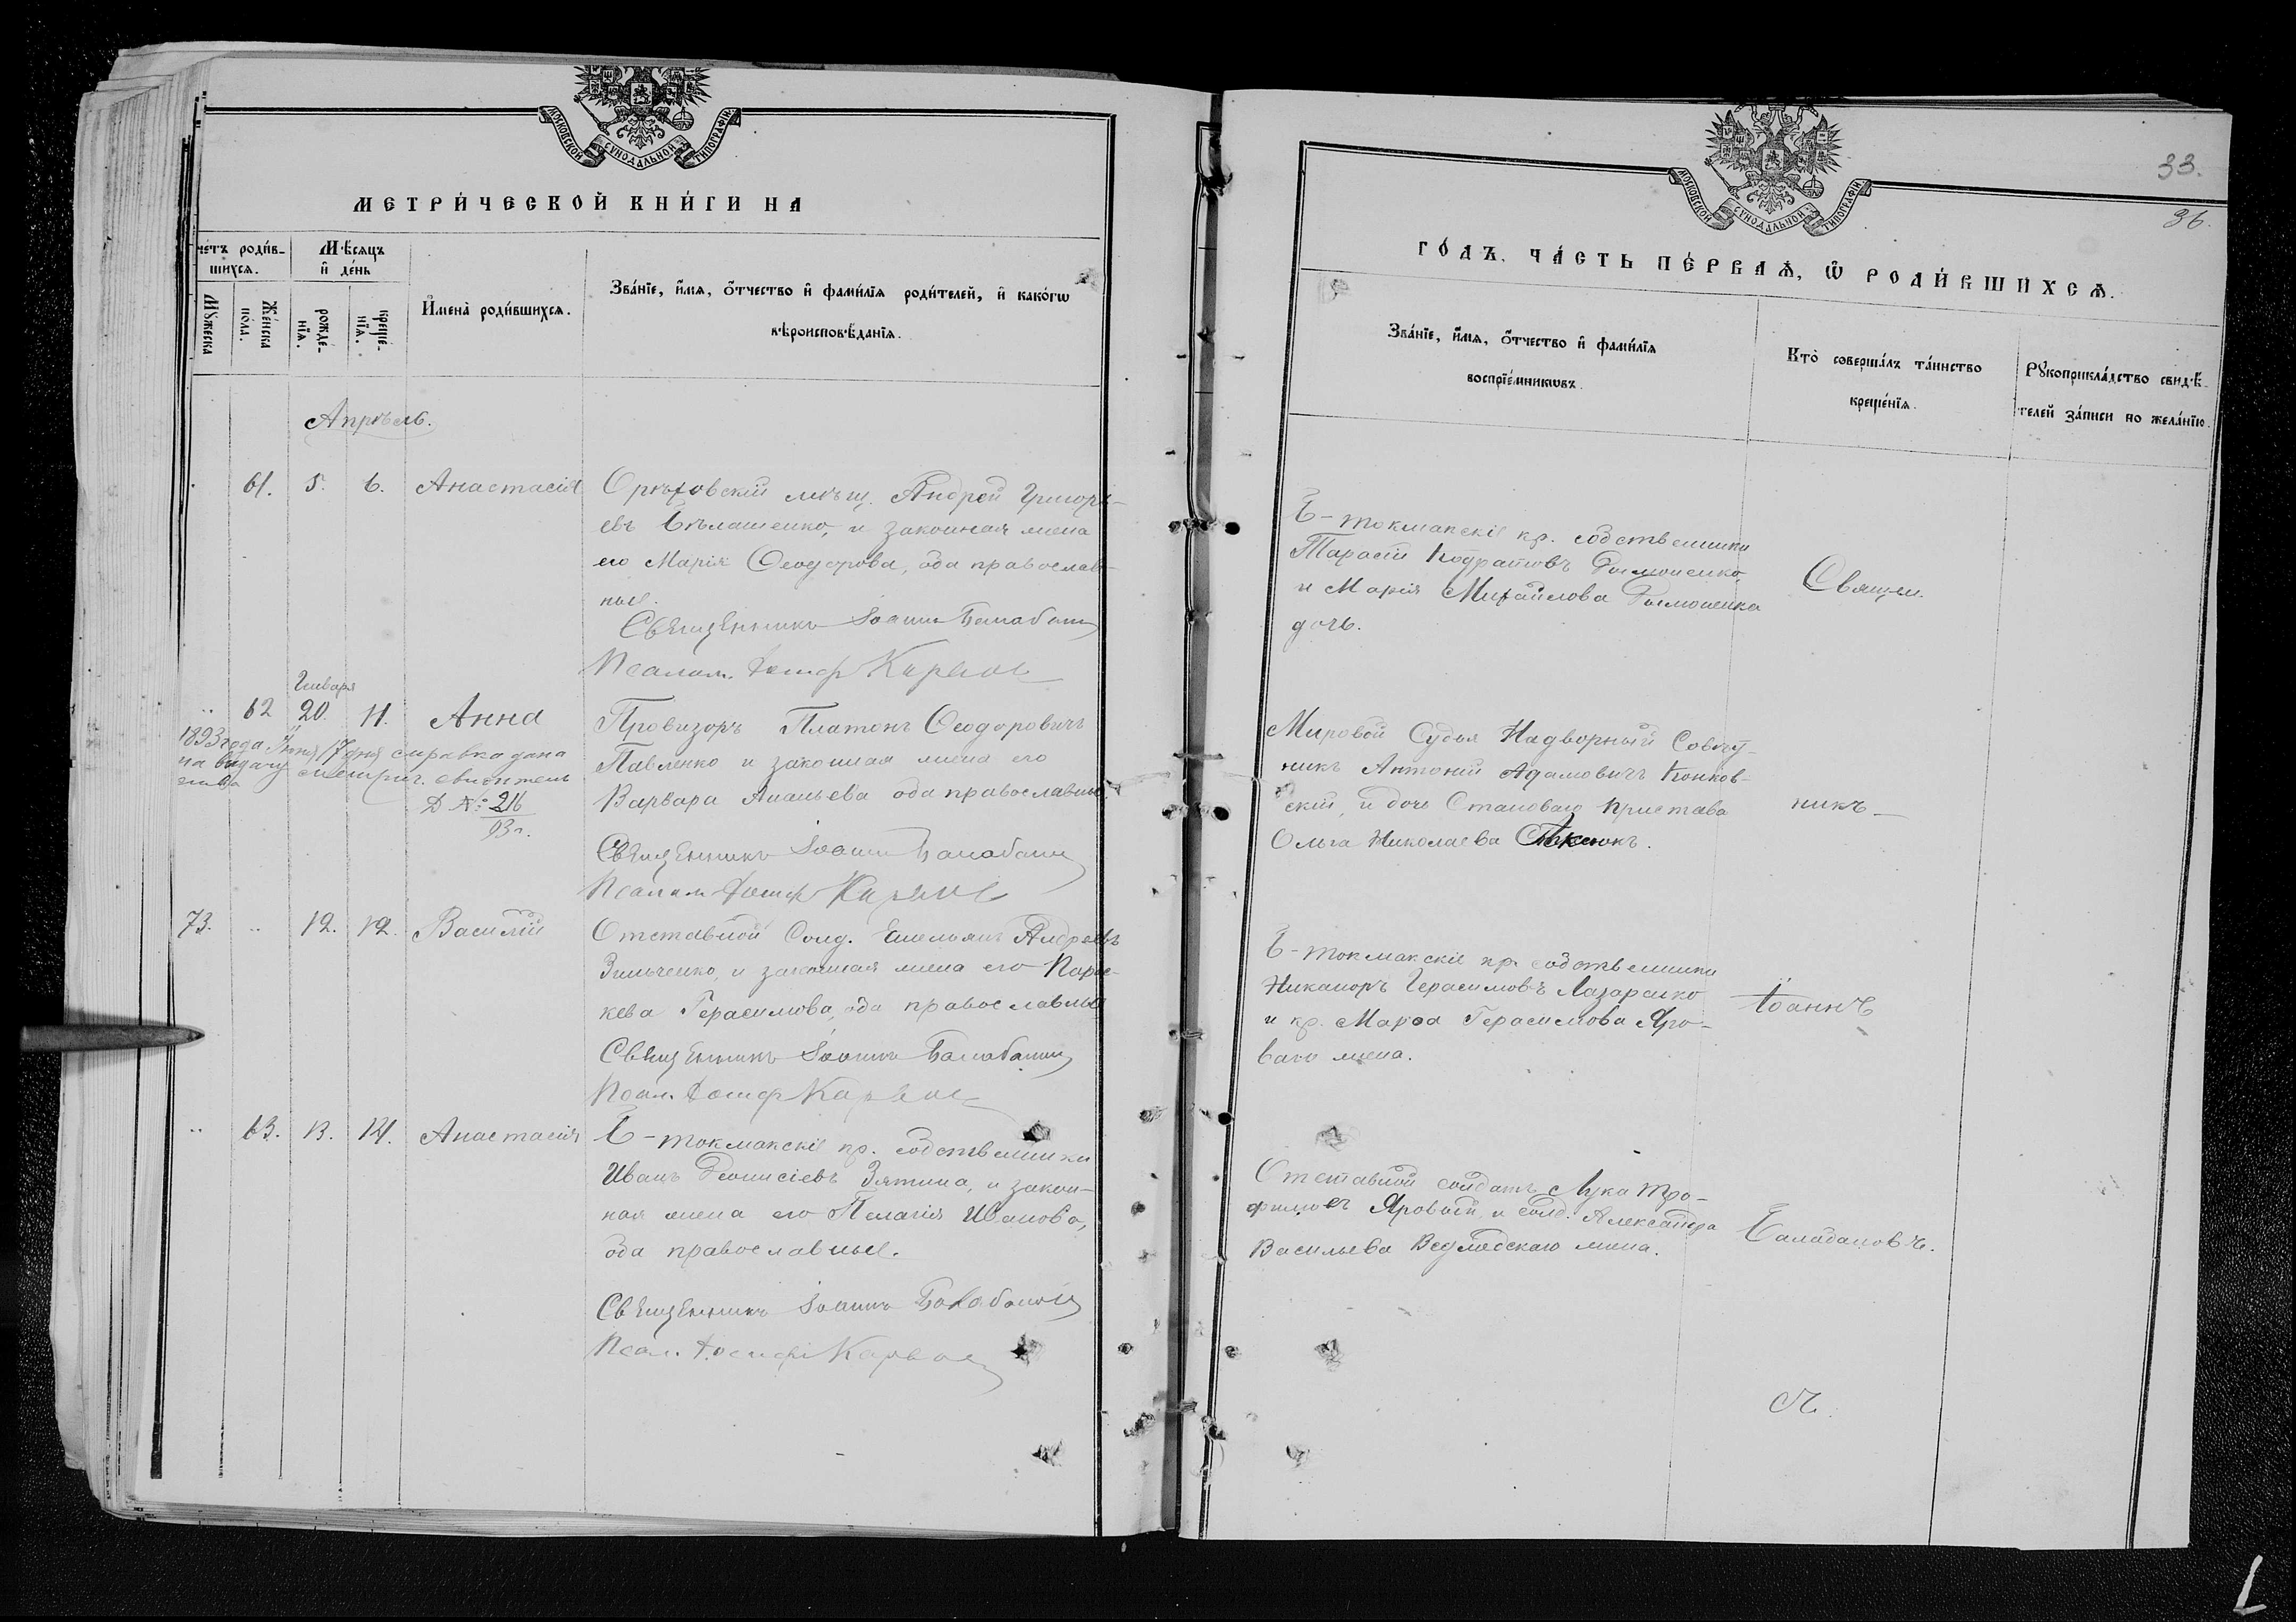 МОСКОВСКОЙ СѴНОДАЛЬНОЙ ТИПОГРАФІИ
МЕТРИ́ЧЕСКОЙ КНИ́ГИ НА
че́тъ роди́в-
шихсѧ.
Мꙋ́жеска
Же́нска
по́ла.
Мѣ́сѧцъ
и҆ де́нь
рожде́-
нїѧ.
креще́-
нїѧ.
И҆мена̀ роди́вшихсѧ.
Зва́нїе, и҆́мѧ, ѻ҆́тчество и҆ фами́лїѧ роди́телей, и҆ како́гѡ
вѣроисповѣ́данїѧ.
Апрѣль.
61. 5. 6. Анастасія
Орѣховскій мѣщ. Андрей Григорь-
евъ Бѣлашенко, и законная жена
его Марія Ѳеодорова, оба православ-
ные.
Священникъ Іоаннъ Балабановъ
Псалом. Іосифъ
62 Января 20. 11. Анна
Провизоръ Платонъ Ѳеодоровичъ
Павленко и законная жена его
Варвара Ананьева оба православные.
1893 года Іюня 17 дня справка дана
на выдачу метрич. свидѣтель
ства
Д №: 216
93 г.
Священникъ Іоаннъ Балабановъ
Псалом. Іосифъ
73. .. 12. 12. Василій
Отставной Солд. Емельянъ Андреевъ
Зинченко, и законная жена его Парас-
кева Герасимова, оба православные
Священникъ Іоаннъ Балабановъ
Псал. Іосифъ
.. 63. 13. 14. Анастасія
Б-токмакскіе кр. собственники
Иванъ Діонисіевъ Зятина, и закон-
ная жена его Пелагія Иванова,
оба православные.
Священникъ Іоаннъ Балабановъ
Псал. Іосифъ
33.
36.
МОСКОВСКОЙ СѴНОДАЛЬНОЙ ТИПОГРАФІИ
ГО́ДЪ, ЧА́СТЬ ПЕ́РВАѦ, Ѽ РОДИ́ВШИХСѦ.
Зва́нїе, и҆́мѧ, ѻ҆́тчество и҆ фами́лїѧ
воспрїе́мникѡвъ.
Кто̀ соверша́лъ та́инство
креще́нїѧ.
Рꙋкоприкла́дство свидѣ́-
телей за́писи по жела́нїю.
Б-токмакскіе кр. собственники
Тарасій Кодратовъ
и Марія Михайлова
дочь.
Мировой Судья Надворный Совѣт-
никъ Антоній Адамовичъ Конков-
скій, и дочь Становаго пристава
Ольга Николаева
Б-токмакскіе кр. собственники
Никаноръ Герасимовъ Лазаренко
и кр. Марѳа Герасимова Яро-
ваго жена.
Отставной солдатъ Лука Тро-
фимовъ Яровый и солд. Александра
Васильева жена.
Священ
никъ
Іоаннъ
Балабановъ.